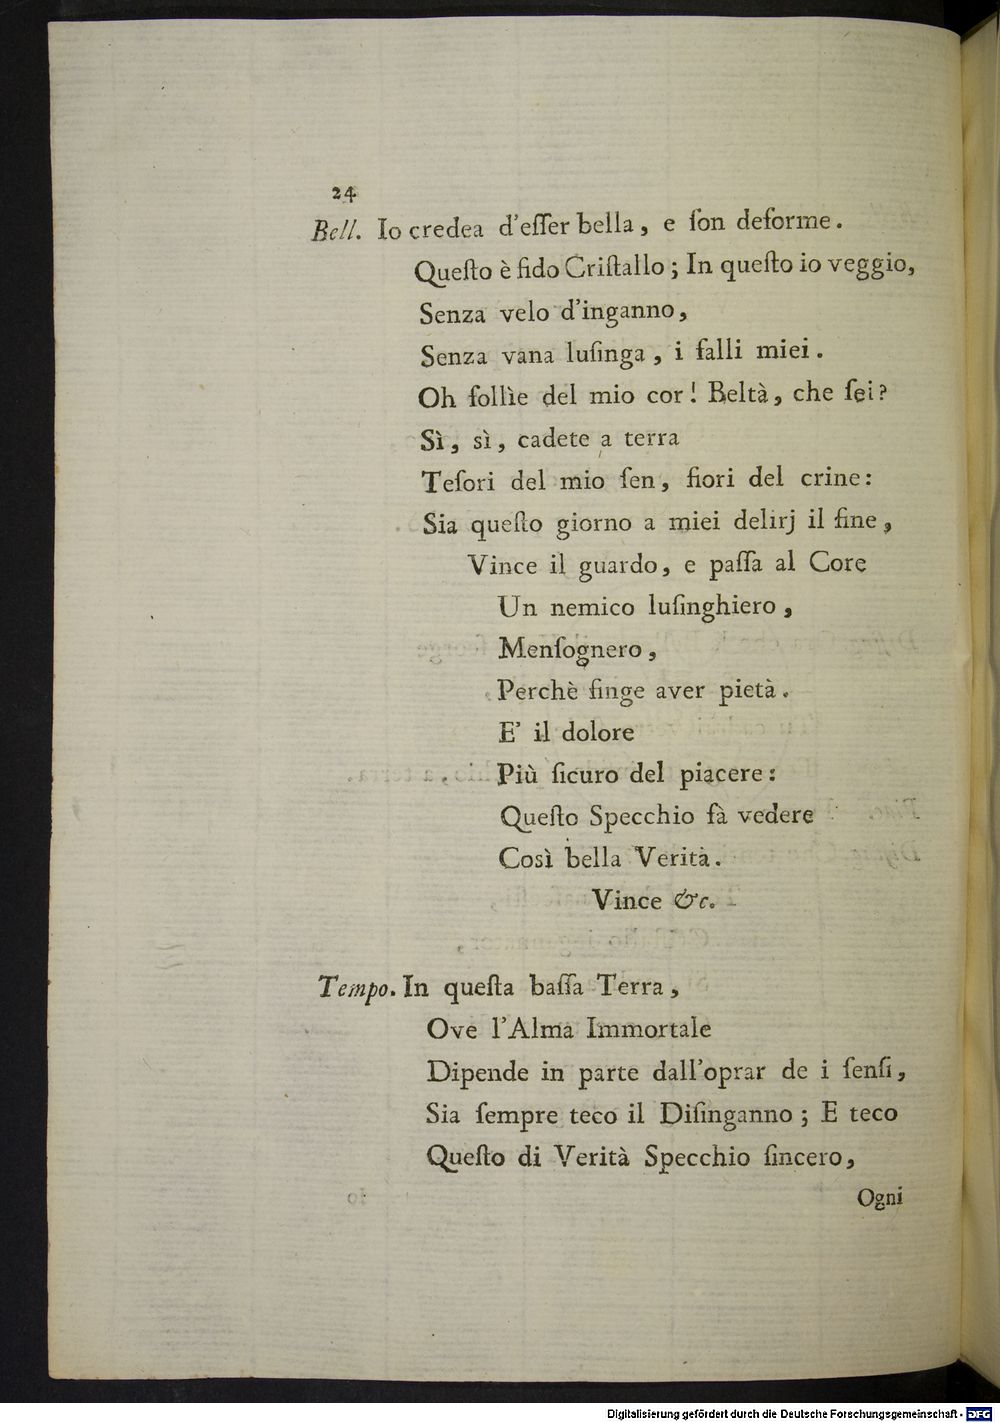 24
Bell. Io credea d'eſſer bella, e ſon deforme.
Queſto è fido Criſtallo; In queſto io veggio,
Senza velo d'inganno,
Senza vana luſinga, i falli miei.
Oh follìe del mio cor! Beltà, che ſei?
Sì, sì, cadete a terra
Teſori del mio ſen, fiori del crine:
Sia queſto giorno a miei delirj il fine,
Vince il guardo, e paſſa al Core
Un nemico luſinghiero,
Menſognero,
Perchè finge aver pietà.
E' il dolore
Più ſicuro del piacere:
Queſto Specchio fà vedere
Così bella Verità.
Vince &c.
Tempo. In queſta baſſa Terra,
Ove l'Alma Immortale
Dipende in parte dall'oprar de i ſenſi,
Sia ſempre teco il Diſinganno; E teco
Queſto di Verità Specchio ſincero,
Ogni
Digitalisierung gefördert durch die Deutsche Forschungsgemeinschaft - DFG